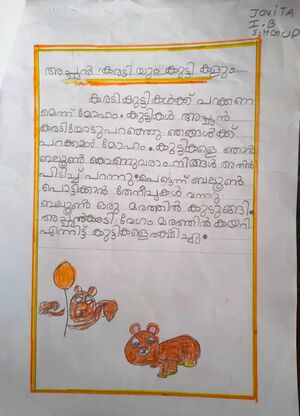 JOVITA
I.B
അച്ഛൻ കരടി യും കുട്ടി കളും
കരടികുട്ടികൾക്ക് പറക്കണ
മെന്ന് മോഹം. കുട്ടികൾ അച്ഛൻ
കരടിയോടു പറഞ്ഞു ഞങ്ങൾക്ക്
പറക്കാൻ മോഹം. കുട്ടികളെ ഞാൻ
ബലൂൺ കൊണ്ടുവരാം നിങ്ങൾ അതിൽ
പിടിച്ച് പറന്നു. പെട്ടെന്ന് ബലൂൺ
പൊട്ടിക്കാൻ തേനീച്ചകൾ വന്നു
ബലൂൺ ഒരു മരത്തിൽ കുടുങ്ങി.
അച്ഛൻകരടി വേഗം മരത്തിൽ കയറി
എന്നിട്ട് കുട്ടികളെ രക്ഷിച്ചു.